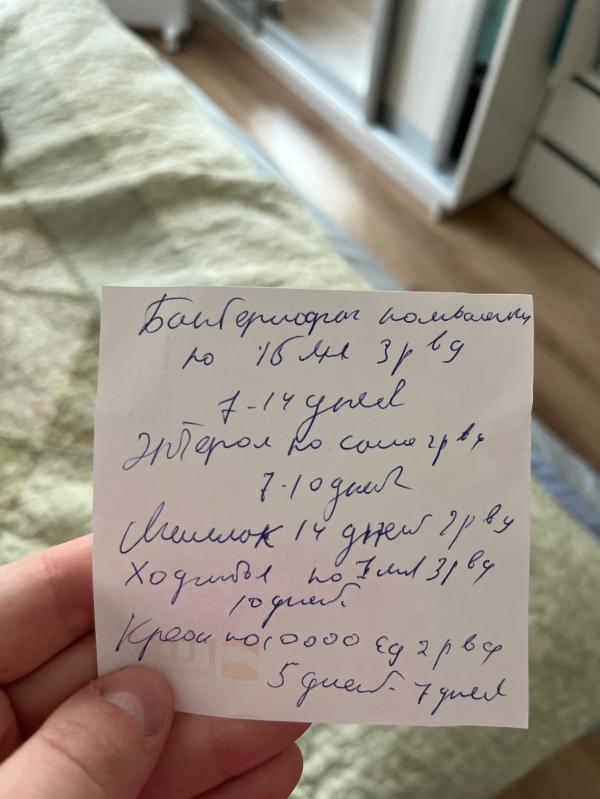 Бактериофаг
по 15 мл 3 р в д
7-14 дней
Энтерол по 2 р в д
7-10 дней
14 дней 2 р в д
по мл 3 р в д
10 дней
Креон по 10000 ЕД 2 р в д
5 дней - 7 дней